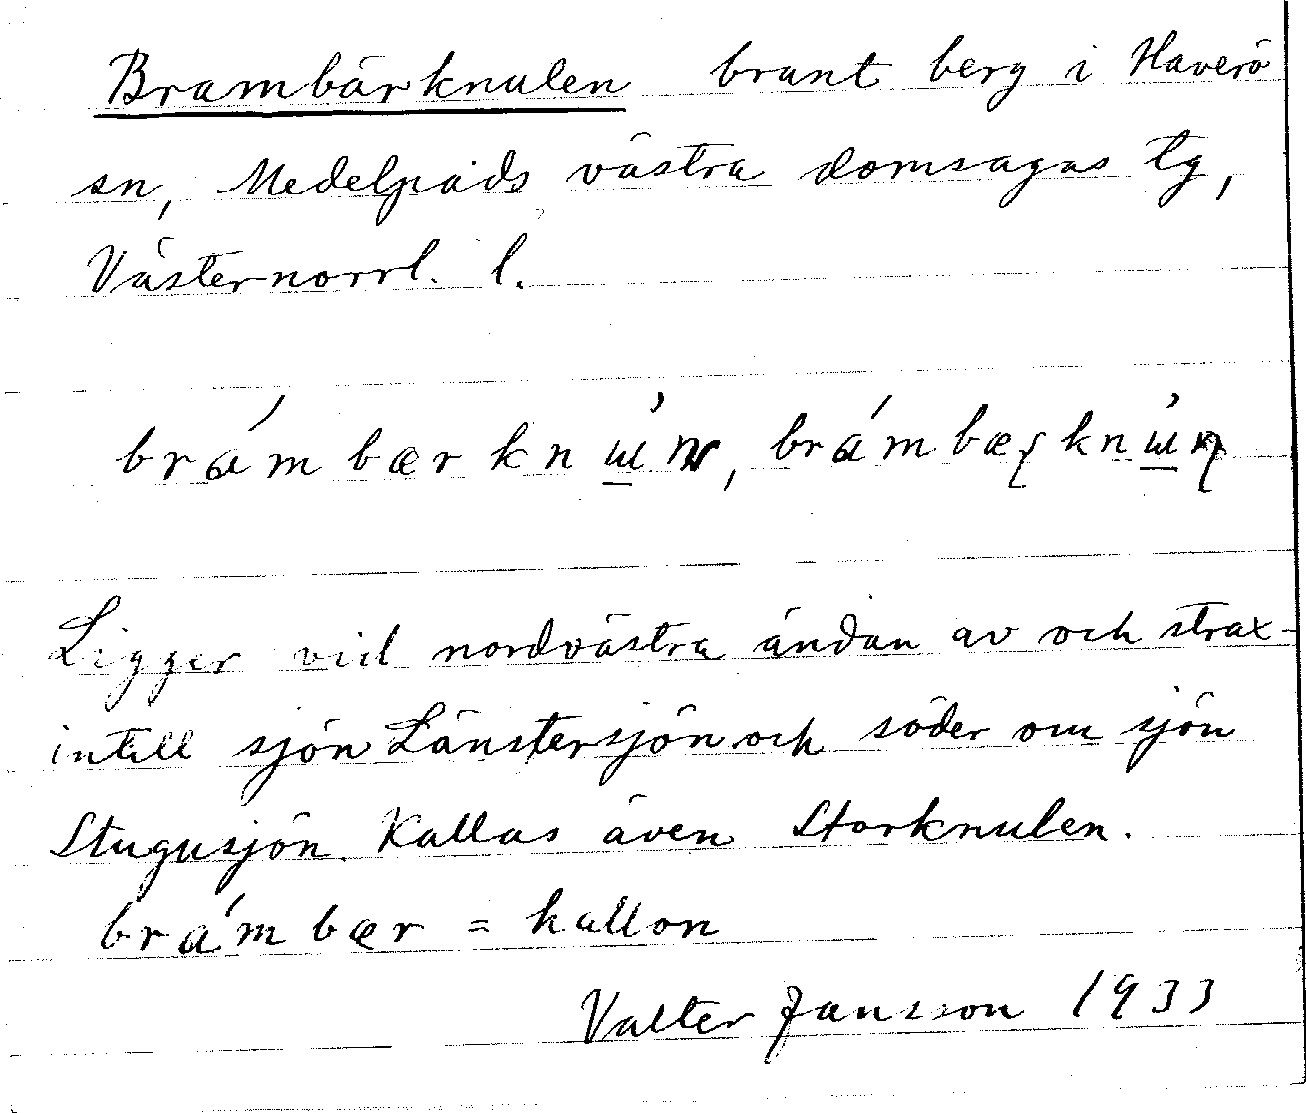 Brambärknulen brant berg i Haverö
sn, Medelpads västra domsagas tg,
Västernorrl. l.
brámbærkn
Ligger vid nordvästra ändan av och strax
intill sjön Länstersjön och söder om sjön
Stugusjön. Kallas även Storknulen.
brámbær = hallon
Valter Jansson 1933